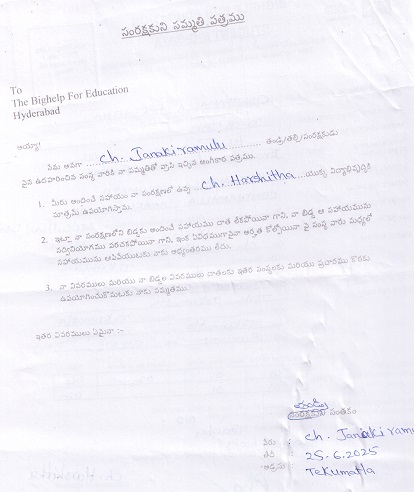 సంరక్షకుని సమ్మతి పత్రము
To
The Bighelp For Education
Hyderabad
అయ్యా!
నేను అనగా ....ch. Janakiramulu.......... తండ్రి/తల్లి/సంరక్షకుడు
పైన ఉదహరించిన సంస్థ వారికి నా సమ్మతితో వ్రాసి ఇచ్చిన అంగీకార పత్రము.
1. మీరు అందించే సహాయం నా సంరక్షణలో ఉన్న .....ch. Harshitha.....యొక్క విద్యాభివృద్ధికి
మాత్రమే ఉపయోగిస్తాను.
2. ఇట్లా నా సంరక్షణలోని బిడ్డకు అందించే సహాయము చాత లేకపోయినా గాని, నా బిడ్డ ఆ సహాయమును
సద్వినియోగము పరచకపోయినా గాని, ఇంక ఏవిధముగానైనా అర్హత కోల్పోయినా పై సంస్థ వారు మధ్యలో
సహాయమును ఆపివేయుటకు నాకు అభ్యంతరము లేదు.
3. నా వివరములు మరియు నా బిడ్డల వివరములు దాతలకు ఇతర సంస్థలకు మరియు ప్రచారము కొరకు
ఉపయోగించుకొనుటకు నాకు సమ్మతము.
ఇతర వివరములు ఏమైనా :-
తండ్రి
సంరక్షకుని సంతకం
పేరు : ch. Janaki ramu
తేది : 25.6.2025
: Tekumatla